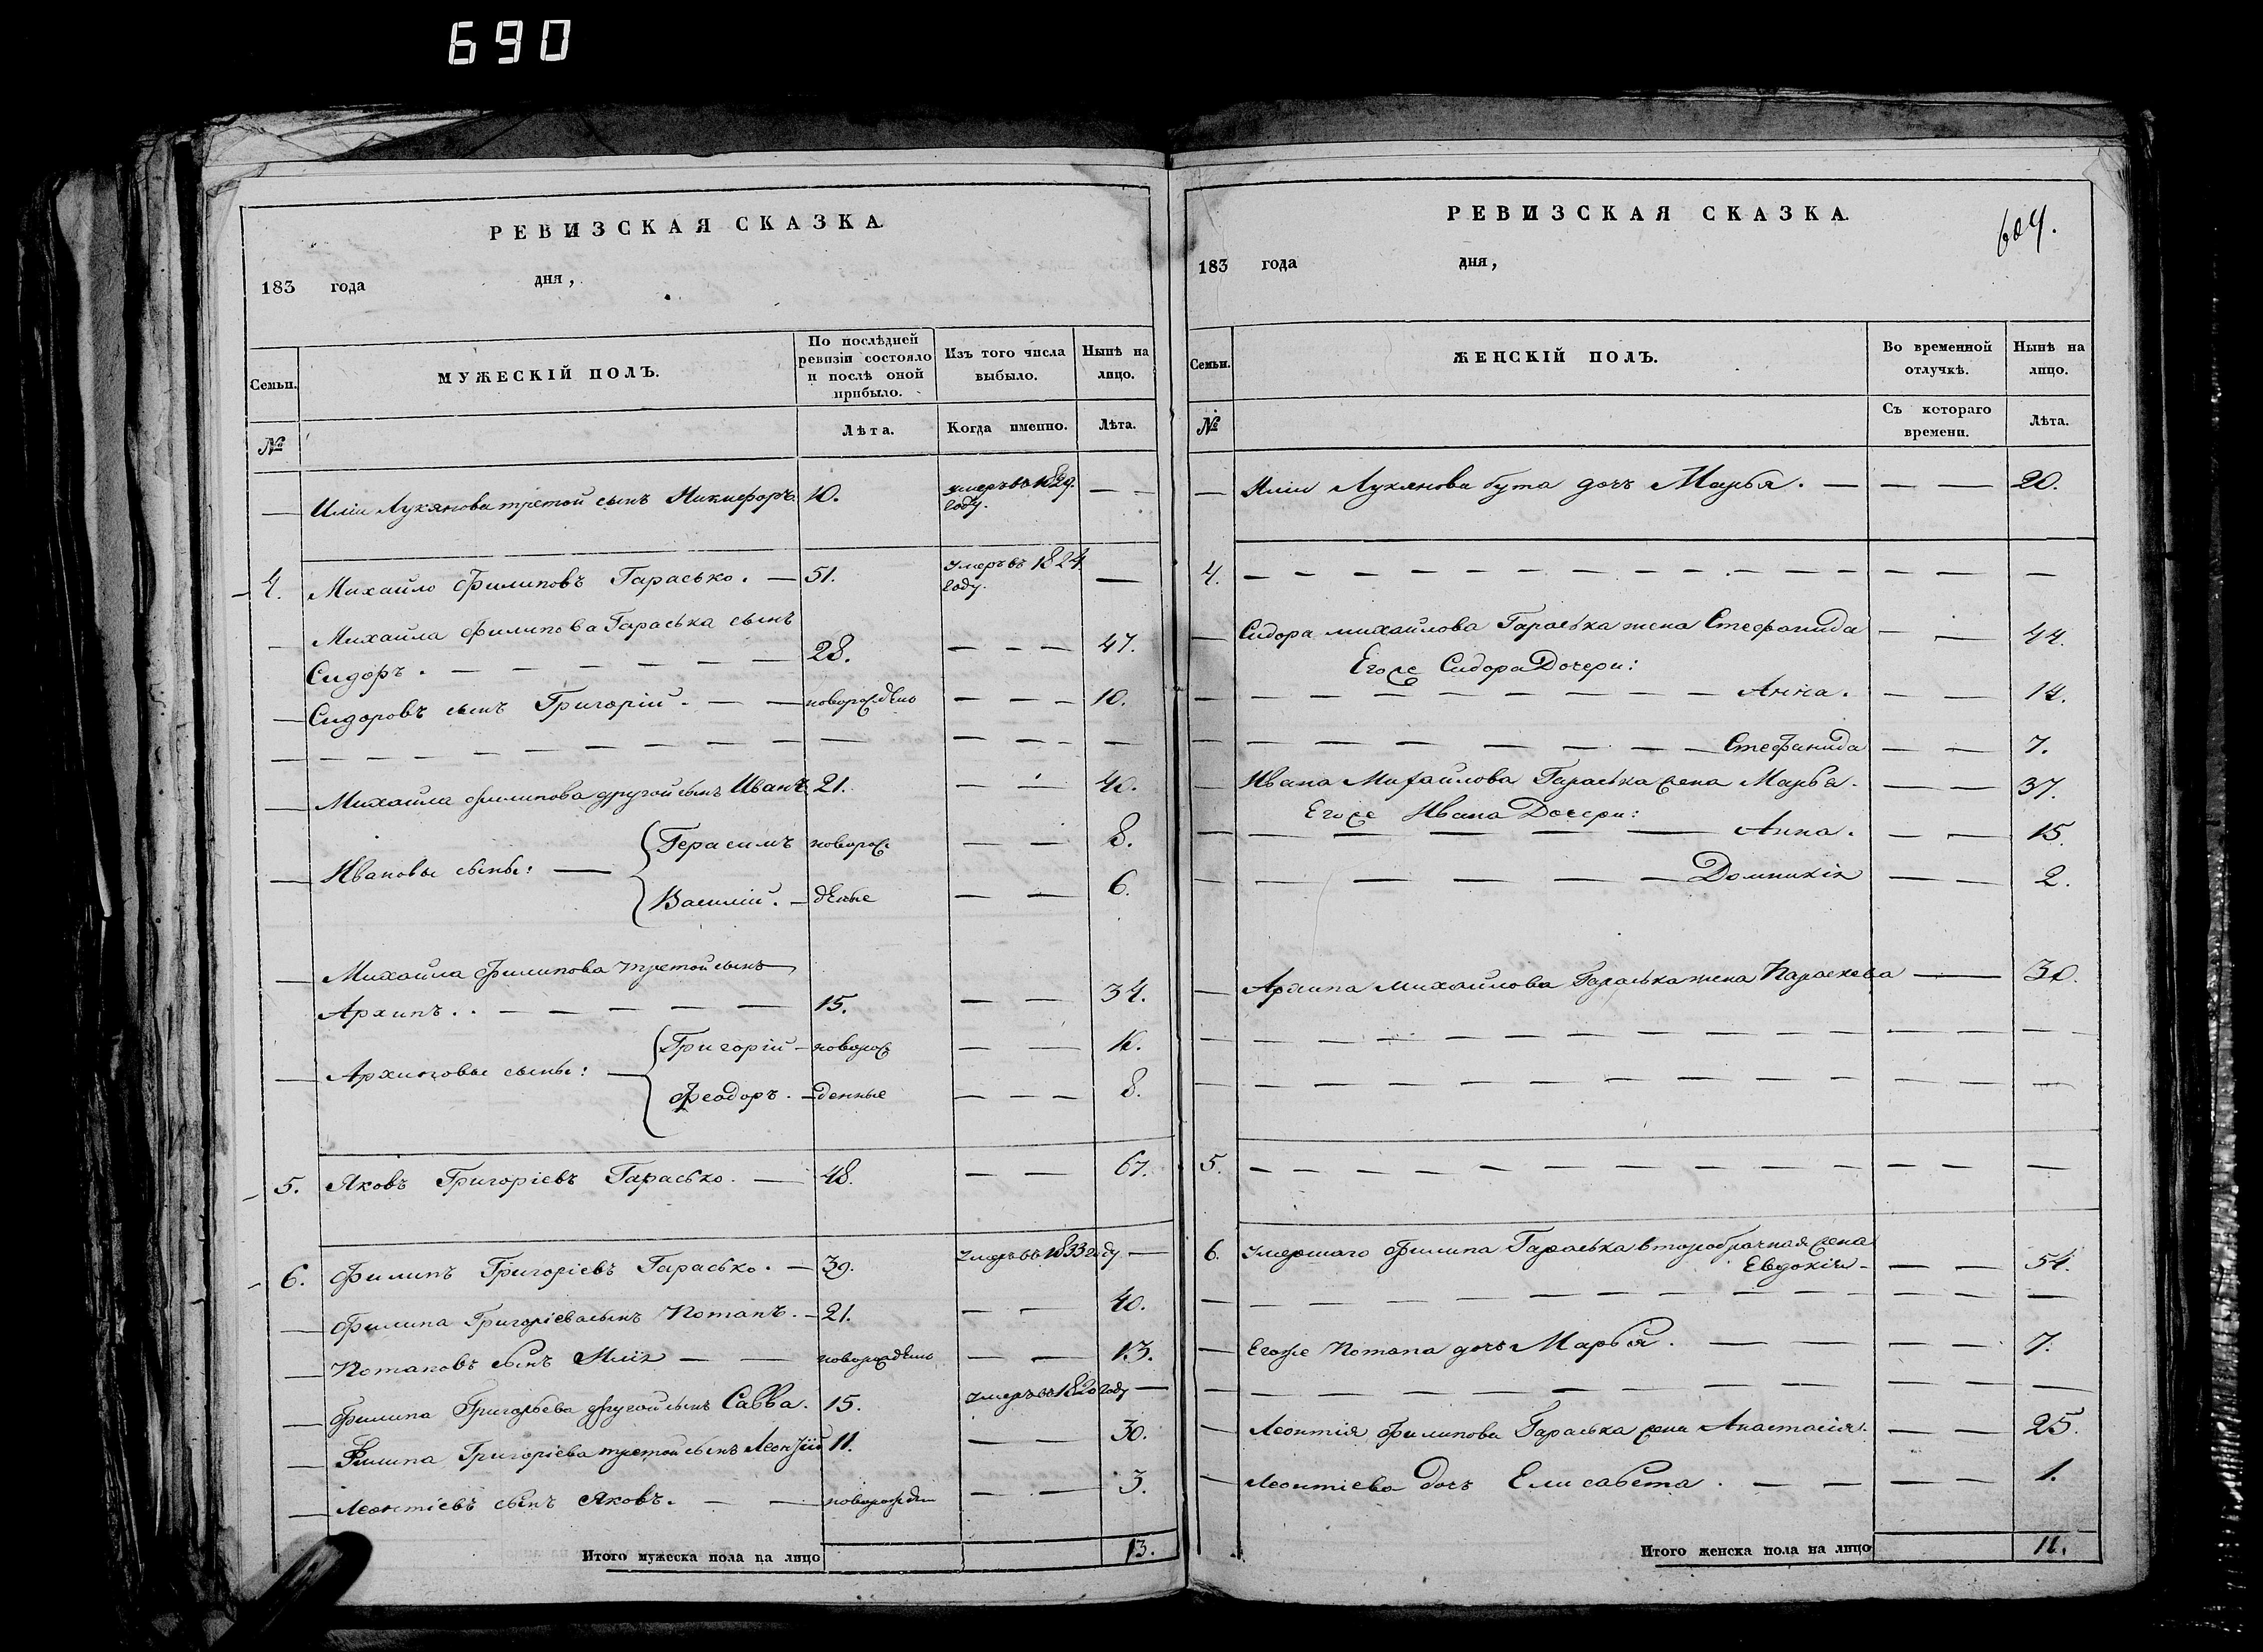 690
РЕВИЗСКАЯ СКАЗКА
183 года дня,
Семьи. МУЖЕСКІЙ ПОЛЪ. По послѣдней ревизіи состояло и послѣ оной прибыло. Изъ того числа выбыло. Нынѣ на лицо.
№ Лѣта. Когда именно. Лѣта.
— Иліи Лукянова третой сынъ Никифоръ 10. умеръ въ 1829. году. — —
4. Михайло Филиповъ Гарасько. — 51. умеръ въ 1824 году. —
— Михайла Филипова Гараська сынъ
Сидоръ. — — — — — — — 28. — — — 47.
— Сидоровъ сынъ Григорій. — — новорожденъ — — — 10.
— — — — — — — — — — — — — —
— Михайла Филипова другой сынъ Иванъ 21. — — 40.
— Ивановы сыны: — Герасимъ новорож — — 8.
Василій. — деные — — 6.
— Михайла Филипова третой сынъ
Архипъ. . — — — — — — 15. — — 34.
— Архиповы сыны: — Григорій — новорож — — 10.
Феодоръ. — денные — — — 8.
5. Яковъ Григоріевъ Гарасько. — 48. — — 67.
6. Филипъ Григоріевъ Гарасько. — 39. умеръ въ 1833 году —
— Филипа Григоріева сынъ Потапъ. — 21. — — 40.
— Потаповъ сынъ Илія — — новорожденъ — — 13.
— Филипа Григорьева другой сынъ Савва. 15. умеръ въ 1820 году —
— Филипа Григоріева третой сынъ Леонтій 11. — — 30.
— Леонтіевъ сынъ Яковъ. — — новорожден — — 3.
Итого мужеска пола на лицо 13.
РЕВИЗСКАЯ СКАЗКА.
604.
183 года дня,
Семьи. ЖЕНСКІЙ ПОЛЪ. Во временной отлучкѣ. Нынѣ на лицо.
№ Съ котораго времени. Лѣта.
— Иліи Лукянова бута дочь Марья. — — — 20.
4. — — — — — — — — — — — — — —
— Сидора михайлова Гараська жена Стефанида — — 44.
Егоже Сидора Дочери:
— — — — — — — — — Анна. — — 14.
— — — — — — — — — Стефанида — — 7.
— Ивана Михайлова Гараська жена Марья. — — 37.
Егоже Ивана Дочери:
— — — — — — Анна. — — 15.
— — — — — — Домникія — — 2.
— Архипа михайлова Гараська жена Параскева — 30.
— — — — — — — — — — — — — —
— — — — — — — — — — — — — —
5. — — — — — — — — — — — — — —
6. умершаго Филипа Гараська второбрачная жена
Евдокія — — — 54.
— — — — — — — — — — — — — —
— Егоже Потапа дочь Марья. — — — — 7.
— — — — — — — — — — — — — —
— Леонтія Филипова Гараська жена Анастасія. — — 25.
— Леонтіева дочь Елисавета. — — — — 1.
Итого женска пола на лицо 11.